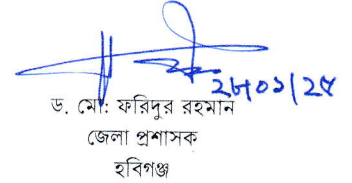 ২৮/০১/২৫
ড. মো: ফরিদুর রহমান
জেলা প্রশাসক
হবিগঞ্জ